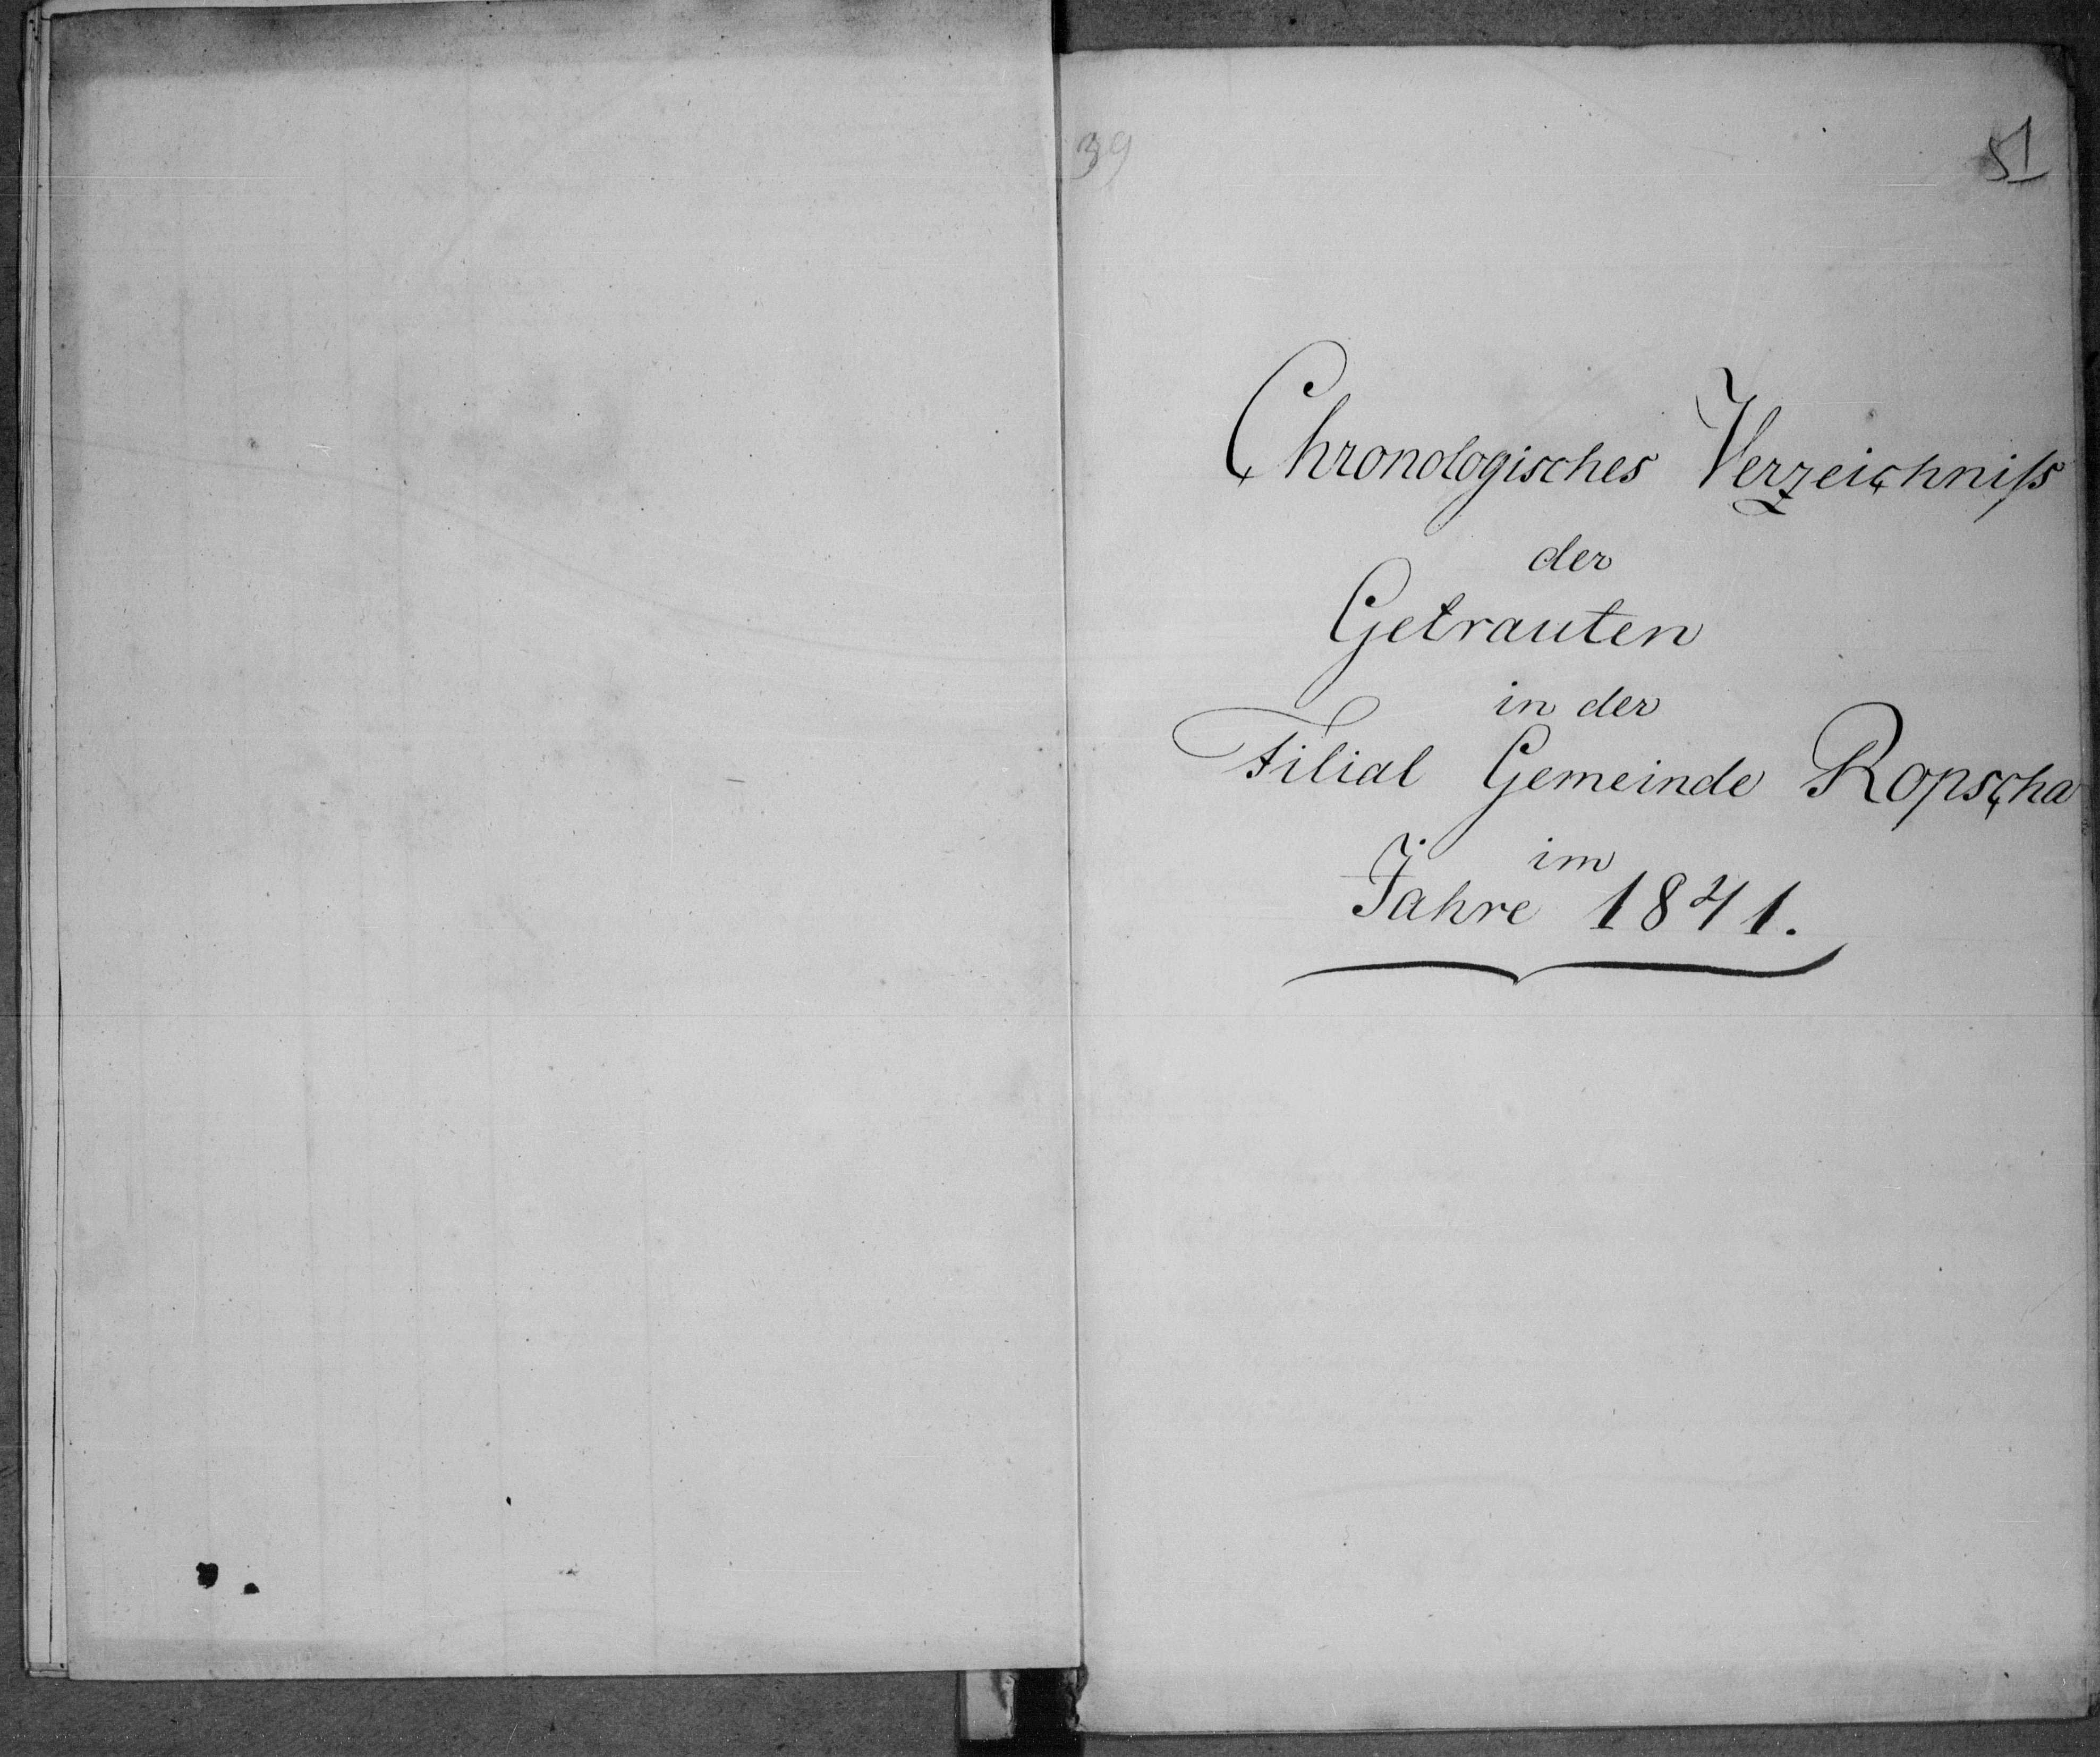 39
51
Chronologisches Verzeichniſs
der
Getrauten
in der
Filial Gemeinde Ropscha
im
Jahre 1841.